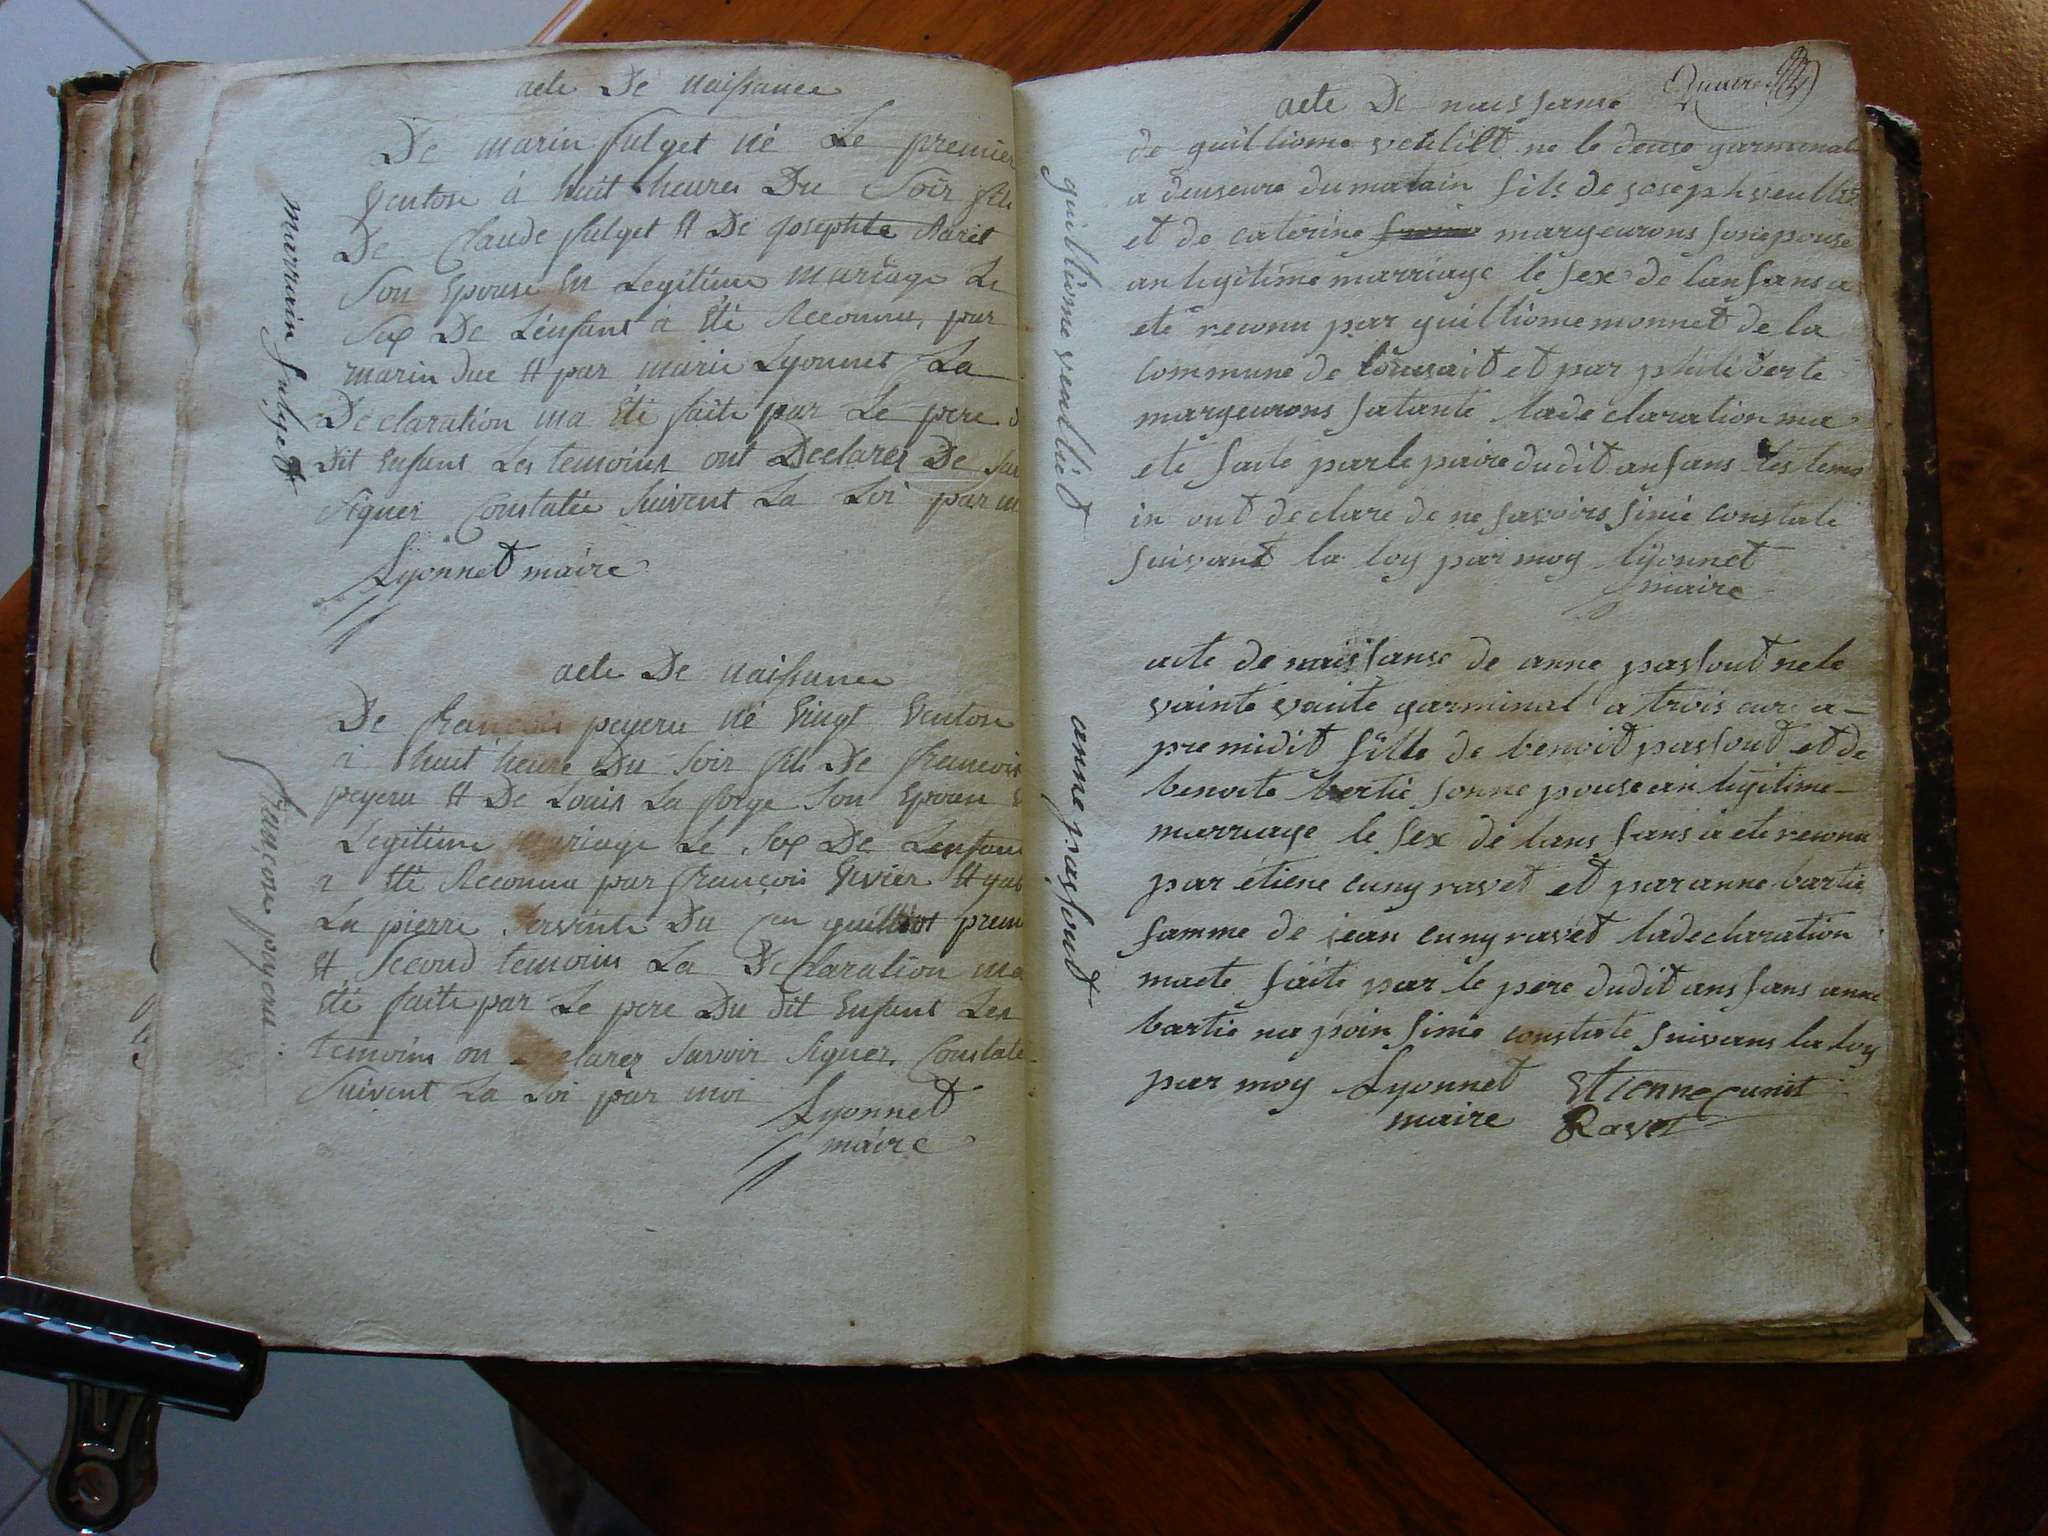 acte De naissance
De marin fulget né Le premier
Ventose à huit heures Du Soir fils
De Claude fulget Et De Josephte
Son Epouse En Legitime mariage Le
Sex De L'enfant à Eté Reconnu, par
marin duc Et par marie Lyonnet La
Declaration ma Eté faite par Le pere d
Dit Enfant Les temoins ont Declarez De
Signer Constatée Suivent La Loi par m
Lyonnet maire
marriain fulget
acte De naissance
De francois payeru né Vingt Ventose
à huit heure Du Soir fils De francois
payeru Et De Louise La forge Son Epouse
Legitime mariage Le Sex De Lenfant
a Eté Reconnu par françois Vivier Et
La pierre Servente Du guilliot
Et Second temoins La Declaration ma
Eté faite par Le pere Du dit Enfant Les
temoins on Declarez Savoir Signer, Constate
Suivent La Loi par moi
Lyonnet
maire
françois payeru
Quatre
acte De naissanse
de guilliome ne le deuse garminal
a deuseure du matain fils de joseph veullie
et de caterine margeurons son epouse
an legitime marriage le sex de lanfans a
eté reconu par guilliome monnet de la
commune de et par philiberte
margeurons satante ladeclaration ma
eté faite par le paire dudit anfans les temo
in ont declare de ne savoirs sinie constate
suivant la loy par moy lyonnet
maire
guilliome veulliet
acte de naissanse de anne passout ne le
vainte garminal a trois eure a-
premidit fille de benoit passout et de
benoite bertie sonne pouse an legitime-
marriage le sex de lans fans a ete reconu
par étiene cuny ravet et par anne bartie
famme de jean cuny ravet ladeclaration
maete faite par le pere dudit ans fans anne
bartie na poin sinie constate suivans la loy
par moy Lyonnet Etienne Cunit
maire Ravet
anne passout